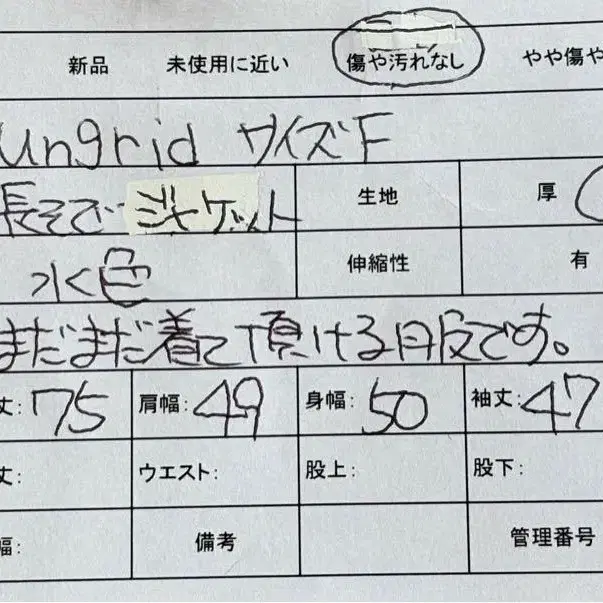 新品 未使用に近い 傷や汚れなし やや傷や
ungrid サイズF
長そで ジャケット 生地 厚
水色 伸縮性 有
まだまだ着て頂ける服です。
丈: 75 肩幅: 49 身幅: 50 袖丈: 47
丈: ウエスト: 股上: 股下:
幅: 備考 管理番号